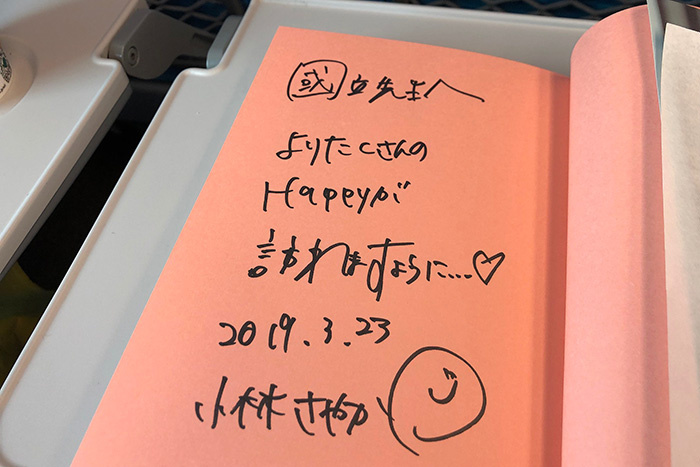 國立先生へ
よりたくさんの
Happyが
訪れますように...♡
2019.3.23
小林さやか